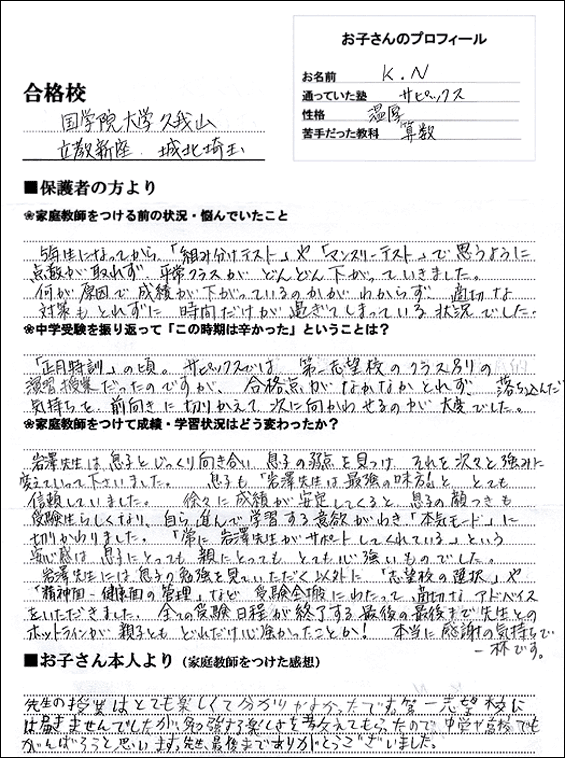 お子さんのプロフィール
お名前 K.N
通っていた塾 サピックス
性格 温厚
苦手だった教科 算数
合格校
国学院大学久我山
立教新座. 城北埼玉
■保護者の方より
❀家庭教師をつける前の状況・悩んでいたこと
5年生になってから、「組み分けテスト」や「マンスリーテスト」で思うように
点数が取れず、平常クラスがどんどん下がっていきました。
何が原因で成績が下がっているのかがわからず、適切な
対策もとれずに時間だけが過ぎてしまっている状況でした。
❀中学受験を振り返って「この時期は辛かった」ということは?
「正月特訓」の頃。サピックスでは、第一志望校のクラス別の
演習授業だったのですが、合格点がなかなかとれず、落ち込んだ
気持ちを、前向きに切りかえて次に向かわせるのが大変でした。
❀家庭教師をつけて成績・学習状況はどう変わったか?
岩澤先生は息子とじっくり向き合い息子の弱点を見つけ、それを次々と強みに
変えていって下さいました。 息子も「岩澤先生は最強の味方だ」と、とても
信頼していました。 徐々に成績が安定してくると、息子の顔つきも
受験生らしくなり、自ら進んで学習する意欲がわき「本気モード」に
切りかわりました。「常に岩澤先生がサポートしてくれている」という
安心感は息子にとっても親にとってもとても心強いものでした。
岩澤先生には息子の勉強を見ていただく以外に「志望校の選択」や
「精神面・健康面の管理」など受験全搬にわたって適切なアドバイス
をいただきました。全ての受験日程が終了する最後の最後まで先生との
ホットラインが親子ともどれだけ心強かったことか! 本当に感謝の気持ちで
一杯です。
■お子さん本人より(家庭教師をつけた感想)
先生の授業はとても楽しくて分かりやすかったです。第一志望校に
は届きませんでしたが、勉強する楽しさを教えてもらったので中学や高校でも
がんばろうと思います。先生、最後までありがとうございました。